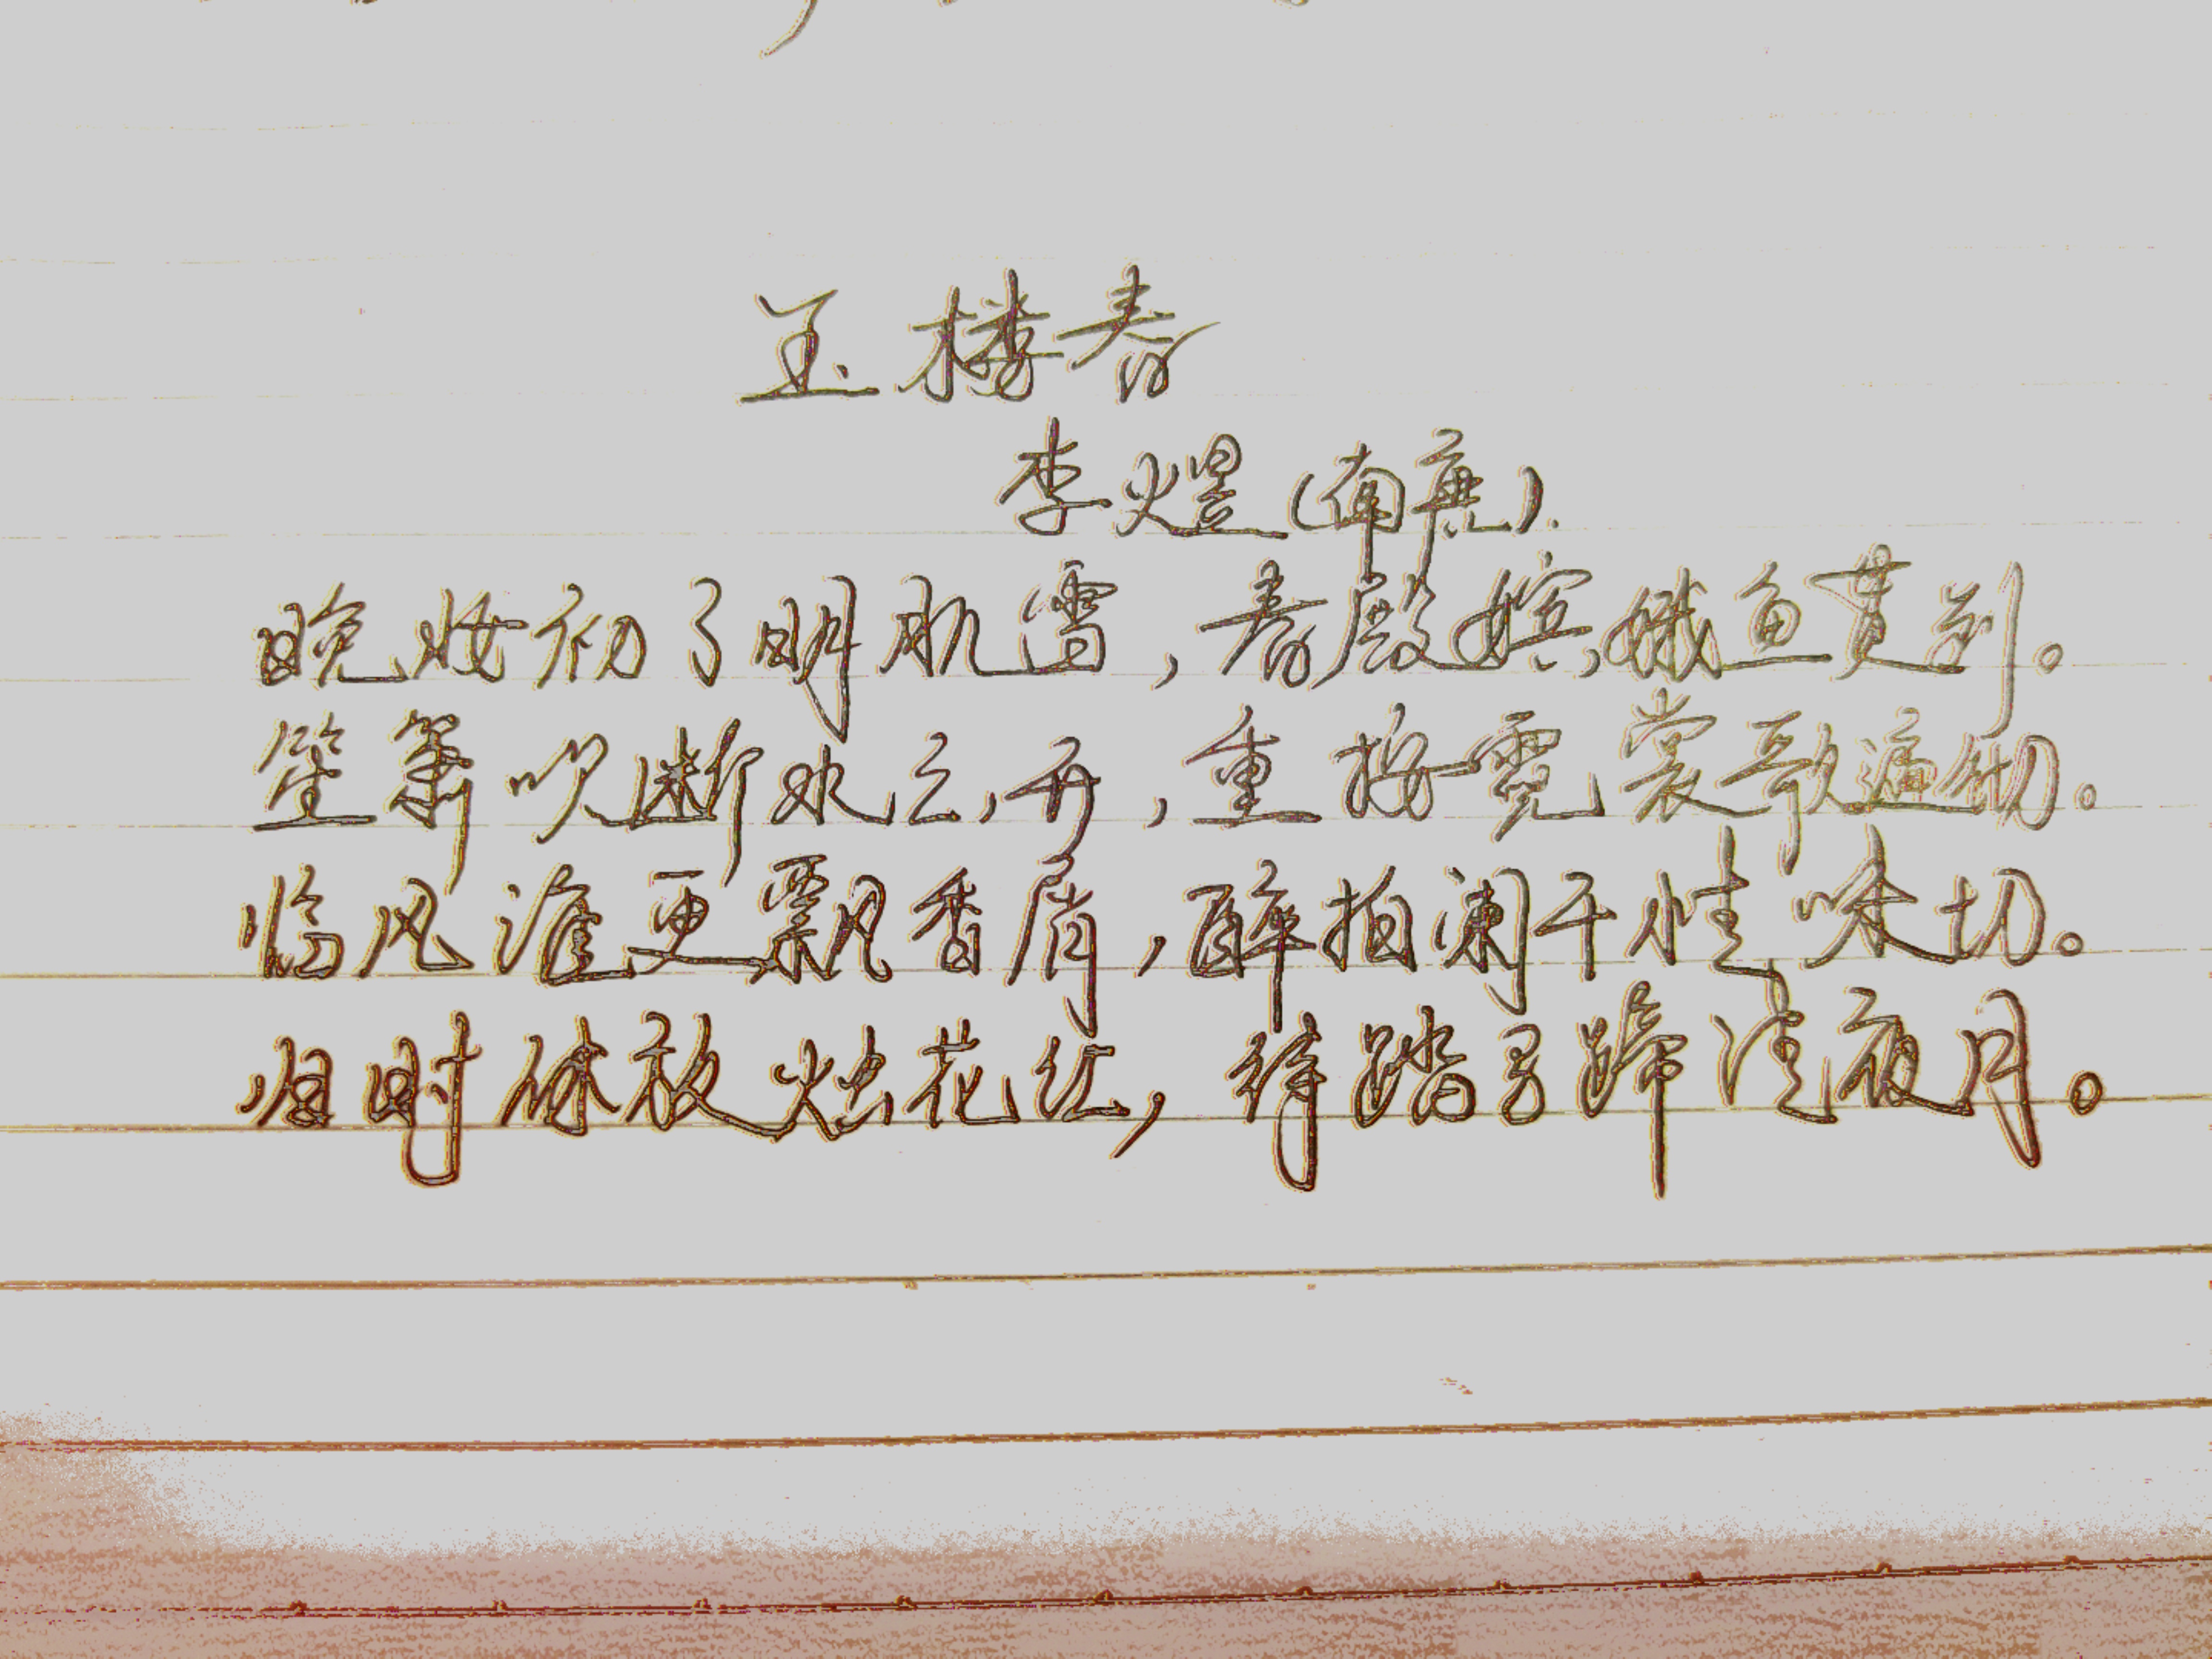 玉楼春
李煜(南唐).
晚妆初了明肌雪，春殿嫔娥鱼贯列。
笙箫吹断水云开，重按霓裳歌遍彻。
临风谁更飘香屑，醉拍阑干情味切。
归时休放烛花红，待踏马蹄清夜月。